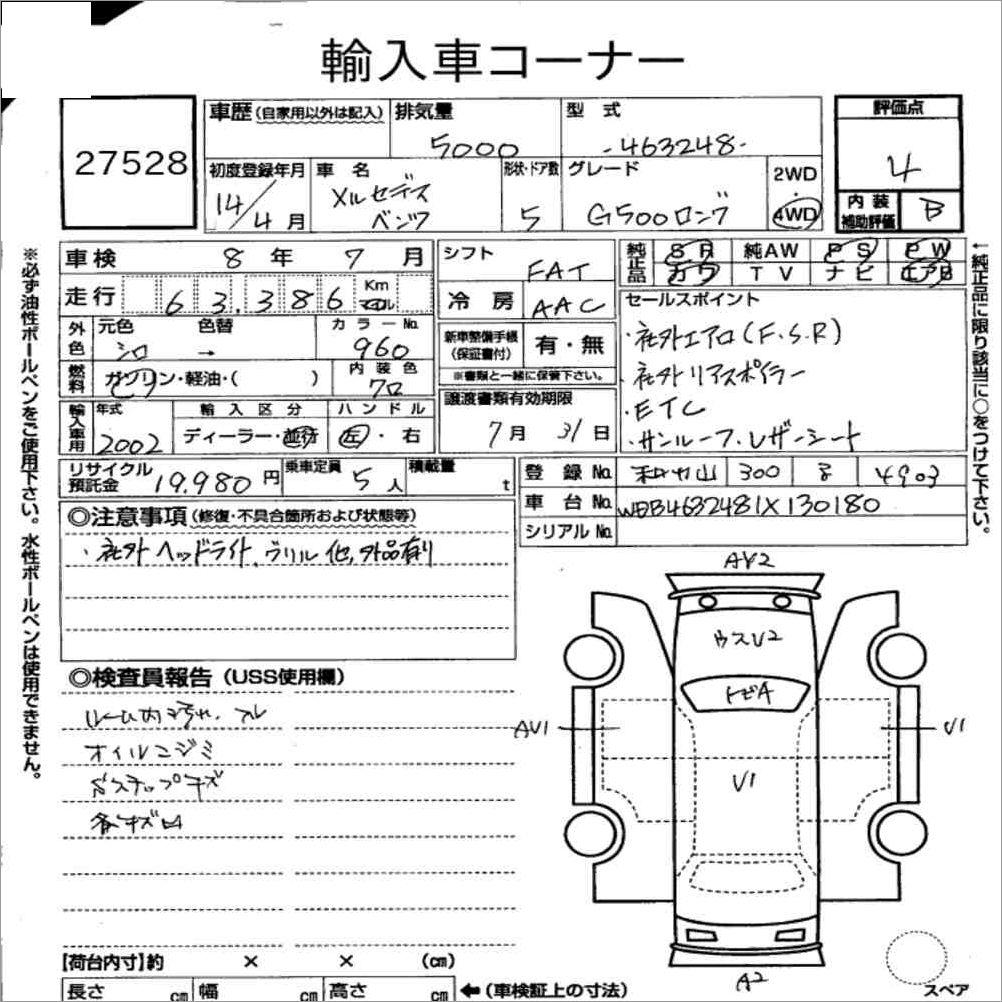 輸入車コーナー
27528
車歴(自家用以外は記入) 排気量 5000 型式 -463248-
評価点 4
初度登録年月 14/4月 車名 メルセデスベンツ 形状・ドア数 5 グレード G500ロング 2WD・4WD
内装補助評価 B
車検 8年 7月 シフト FAT
純正品 SR 純AW PS PW
カワ TV ナビ エアB
走行 63,386 Km マイル 冷房 AAC
セールスポイント
・社外エアロ(F.S.R)
・社外リアスポイラー
・ETC
・サンルーフ・レザーシート
外色 元色 シロ 色替 → カラーNo. 960
新車整備手帳(保証書付) 有・無
※書類と一緒に保管下さい。
燃料 ガソリン・軽油・( ) 内装色 クロ
譲渡書類有効期限 7月31日
輸入車用 年式 2002 輸入区分 ディーラー・並行 ハンドル 左・右
リサイクル預託金 19,980円 乗車定員 5人 積載量 t
登録No. 和歌山 300 4903
車台No. WDB4632481X130180
シリアルNo.
◎注意事項(修復・不具合箇所および状態等)
・社外ヘッドライト、グリル他、外品有り
◎検査員報告(USS使用欄)
ルーム内汚れ、スレ
オイルニジミ
Sステップキズ
各キズ凹
AY2
ウスU2
トビA
AV1
V1
V1
A2
スペア
【荷台内寸】約 × × (cm)
長さ cm 幅 cm 高さ cm ←(車検証上の寸法)
※必ず油性ボールペンをご使用下さい。水性ボールペンは使用できません。
←純正品に限り該当に○をつけて下さい。